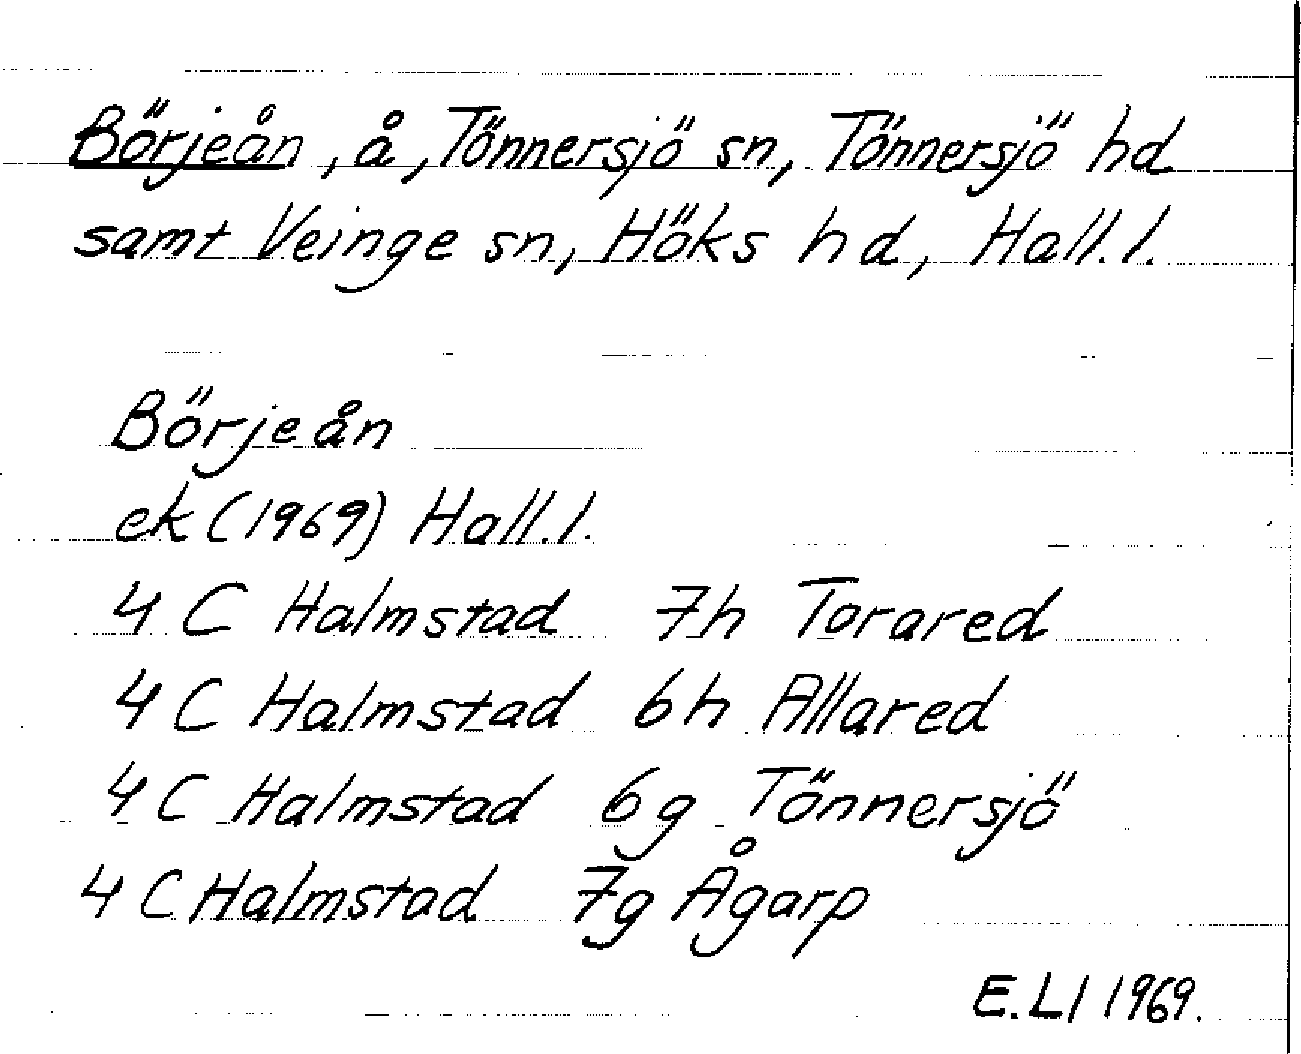 Börjeån, å, Tönnersjö sn, Tönnersjö hd
samt Veinge sn, Höks hd, Hall.l.
Börjeån
ek (1969) Hall.l.
4 C Halmstad 7h Torared
4 C Halmstad 6h Allared
4 C Halmstad 6g Tönnersjö
4 C Halmstad 7g Ågarp
E.Ll 1969.